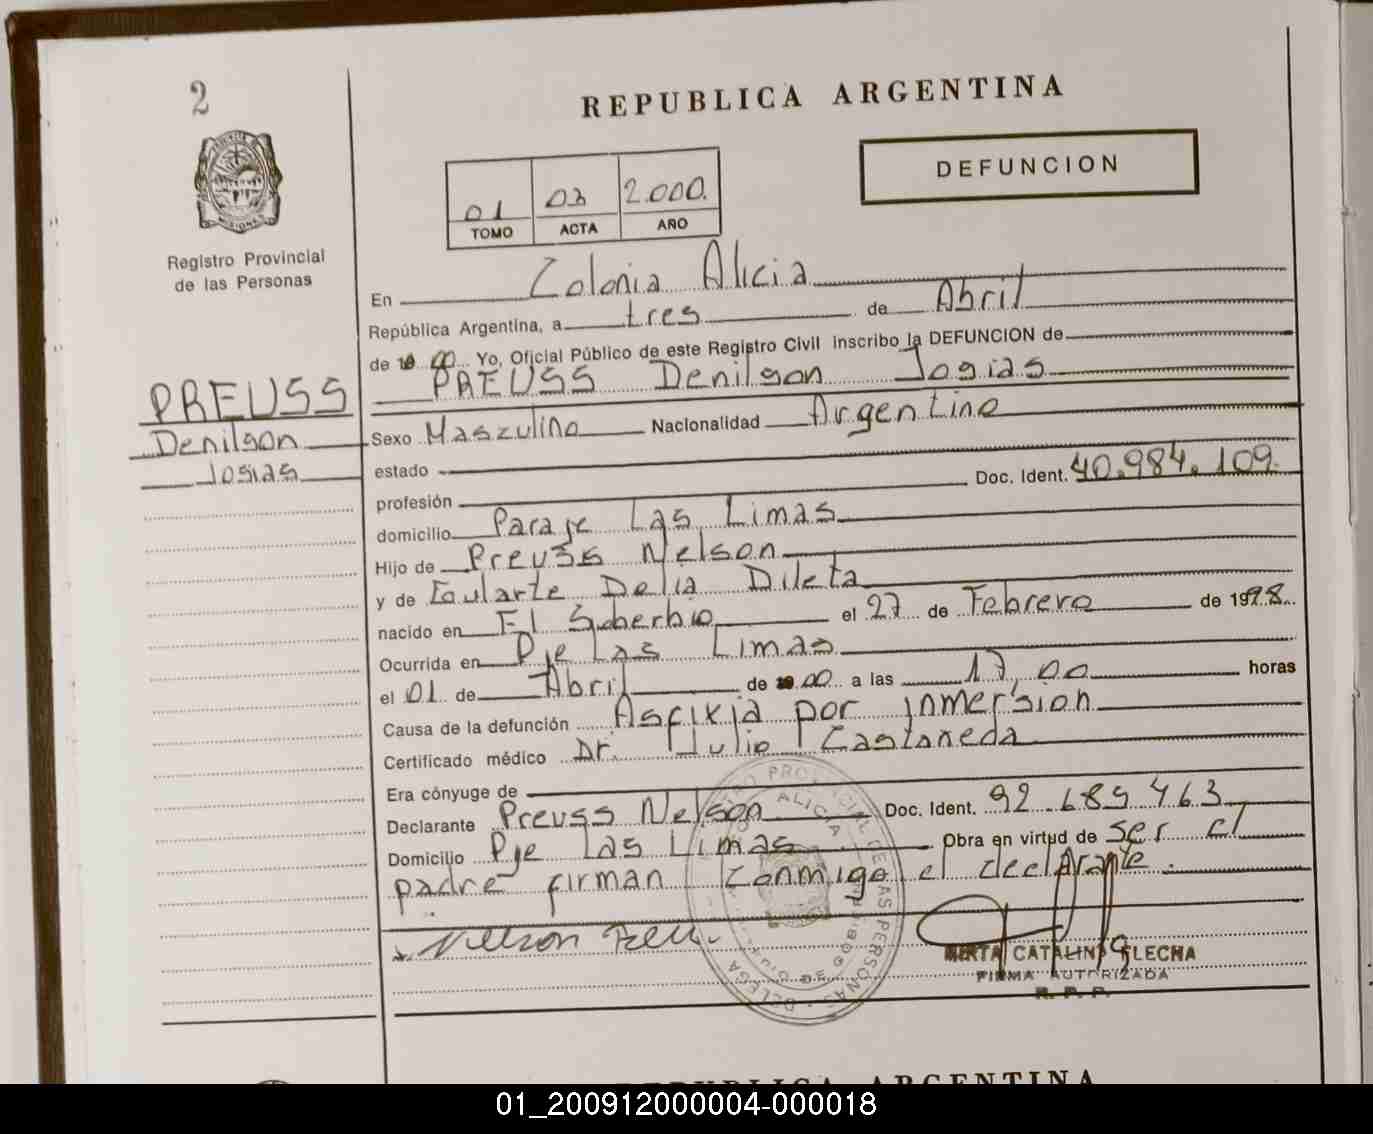 2
REPUBLICA ARGENTINA
DEFUNCION
01 03 2.000.
TOMO ACTA AÑO
Registro Provincial
de las Personas
En Colonia Alicia
República Argentina, a tres de Abril
de 00 Yo, Oficial Público de este Registro Civil inscribo la DEFUNCION de
PREUSS Denilson Josias
PREUSS
Denilson
Josias
Sexo Masculino Nacionalidad Argentino
estado
profesión Doc. Ident. 40.984.109.
domicilio Paraje Las Limas
Hijo de Preuss Nelson
y de Goularte Delia Dileta
nacido en El Soberbio el 27 de Febrero de 1998.
Ocurrida en Pje Las Limas
el 01 de Abril de 00 a las 17,00 horas
Causa de la defunción Asfixia por inmersion
Certificado médico Dr. Julio Castaneda
Era cónyuge de
Declarante Preuss Nelson Doc. Ident. 92.689.463
Domicilio Pje Las Limas Obra en virtud de ser el
padre firman conmigo el declarante.
Nelson
MIRTA CATALINA FLECHA
FIRMA AUTORIZADA
R. P. P.
REPUBLICA ARGENTINA
01_200912000004-000018